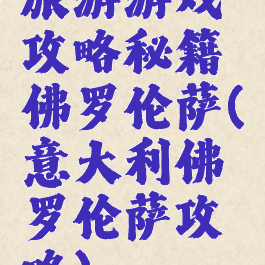 旅游游戏
攻略秘籍
佛罗伦萨(
意大利佛
罗伦萨攻
略)